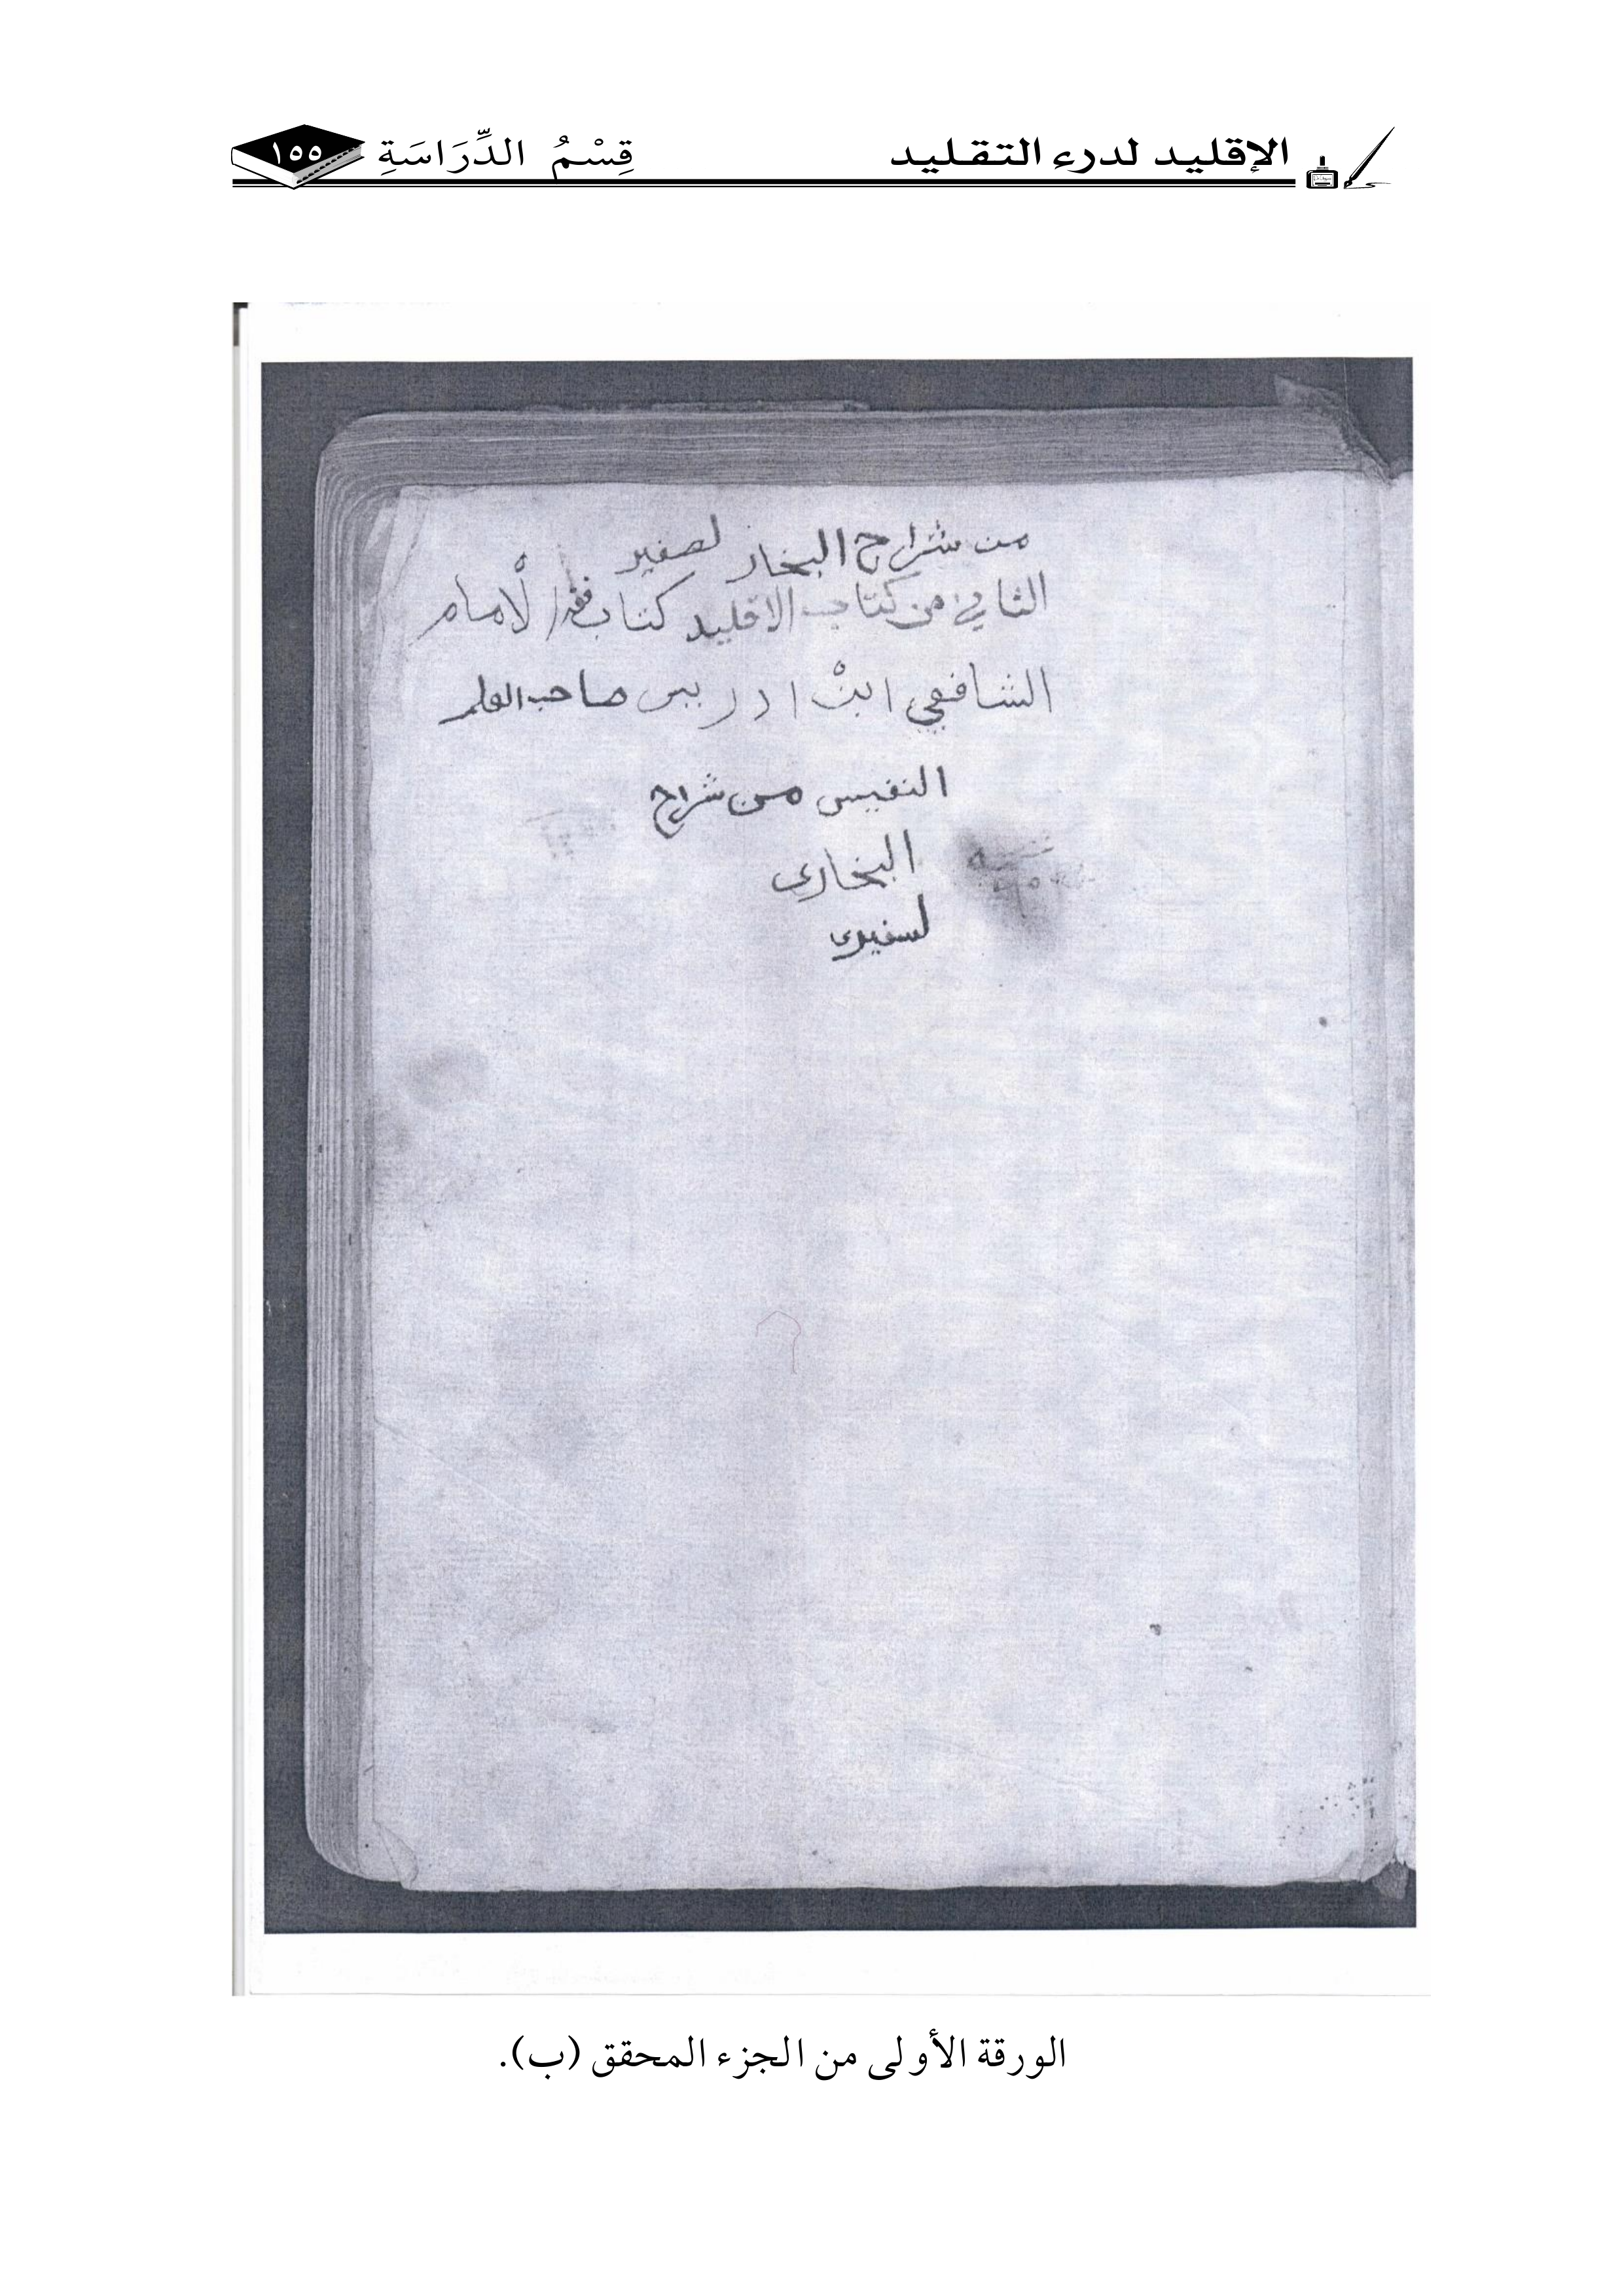 الإقليد لدرء التقليد
قِسْمُ الدِّرَاسَةِ ١٥٥
من شراح البخار لصفير
الثاني من كتاب الاقليد كتاب فقه الأمام
الشافعي ابنْ ادريس صاحب العلم
النفيس من شراح
البخاري
لسفيرى
الورقة الأولى من الجزء المحقق (ب).